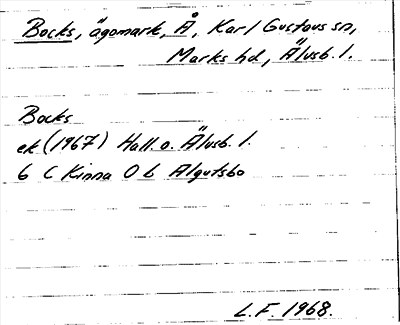 Bocks, ägomark, Å, Karl Gustavs sn,
Marks hd, Älvsb. l.
Bocks
ek (1967) Hall. o. Älvsb. l.
6 C Kinna 0 b Algutsbo
L.F. 1968.